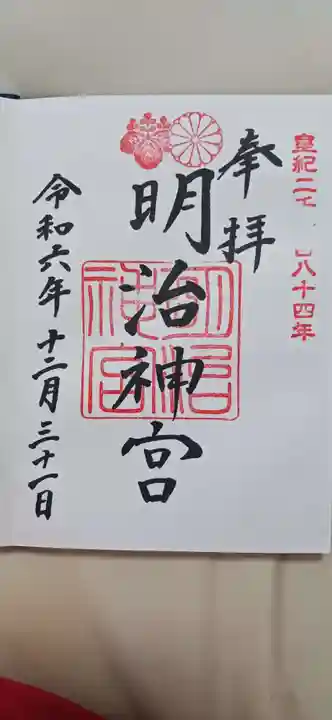 皇紀二千 百八十四年
奉拝
明治神宮
明治神宮
令和六年十二月三十一日